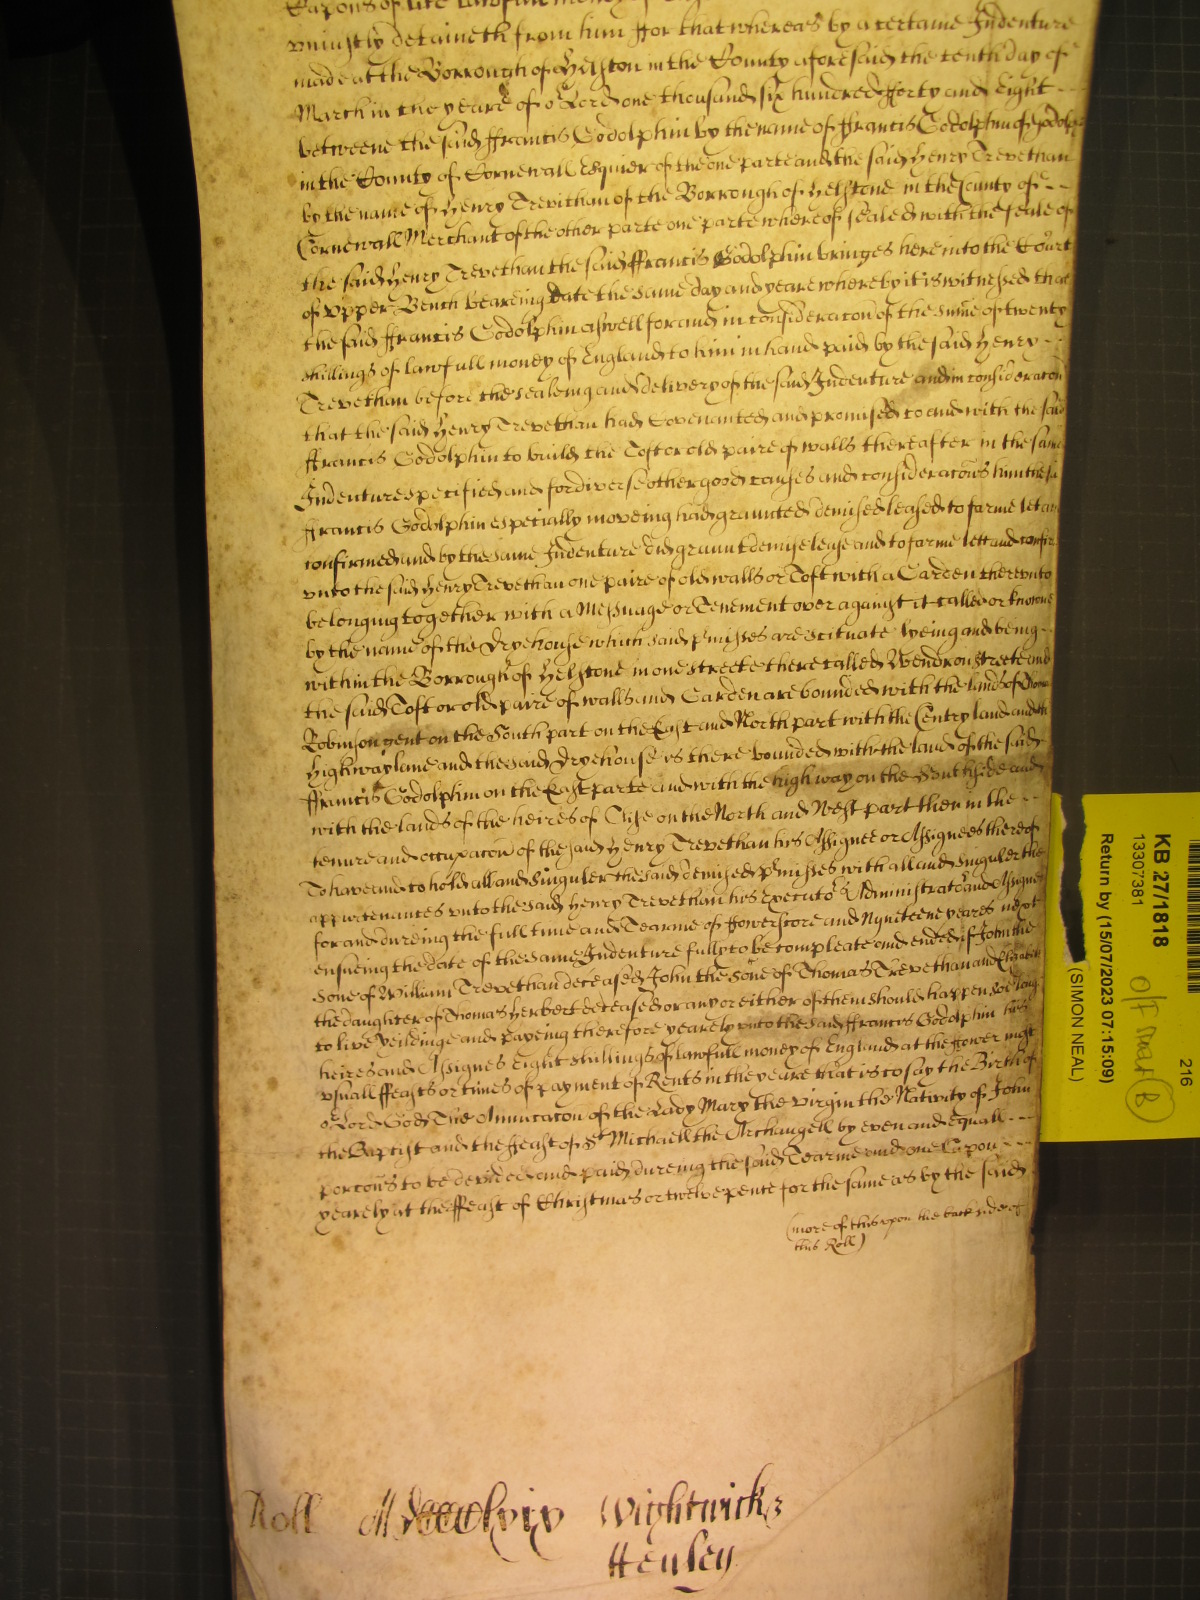 vniustly detaineth from him ffor that whereas by a certaine Indenture
made at the Borrough of Helston in the County aforesaid the tenth day of
March in the yeare of o Lord one thousand six hundred fforty and Eight
betweene the said ffrancis Godolphin by the name of ffrancis Godolphin of Godolphin
in the County of Cornewall Esquier of the one parte and the said Henry Trevethan
by the name of Henry Trevithan of the Borrough of Helstone in the County of
Cornewall Merchant of the other parte one parte whereof sealed with the seale of
the said Henry Trevethan the said ffrancis Godolphin bringes here into the Court
of vpper Bench beareing date the same day and yeare whereby it is witnessed that
the said ffrancis Godolphin aswell for and in consideracon of the sume of twenty
shillings of lawfull money of England to him in hand paid by the said Henry
Trevethan before the sealeing and delivery of the said Indenture and in consideracon
that the said Henry Trevethan had Covenanted and promised to and with the said
ffrancis Godolphin to build the Toft or old paire of walls thereafter in the same
Indenture specified and for diverse other good causes and consideracons him the
ffrancis Godolphin especially moveing had graunted demised leased to farme let
confirmed and by the same Indenture did graunt demise lease and to farme lett and confirme
vnto the said Henry Trevethan one paire of old walls or Toft with a Garden therevnto
belonging together with a Messuage or Tenement over against it called or knowne
by the name of the Dryehouse which said pmisses are scituate lyeing and being
within the Borrough of Helstone in one streete there called Wendron Streete and
the said Toft or old paire of walls and Garden are bounded with the lands of
Robinson gent on the South part on the East and North part with the Centry land and the
Highway lane and the said Dryehouse is there bounded with the land of the said
ffrancis Godolphin on the East parte and with the high way on the South side and
with the lands of the heires of on the North and West part then in the
tenure and occupacon of the said Henry Trevethan his Assignee or Assignees thereof
To have and to hold all and Singuler the said demised pmisses with all and singuler the
appurtenances vnto the said Henry Trevethan his Executors Administrators and Assignes
for and dureing the full time and Tearme of ffowerscore and Nyneteene yeares next
ensueing the date of the same Indenture fully to be compleate and ended if John the
sone of William Trevethan deceased John the sone of Thomas Trevethan and Elizabeth
the daughter of Thomas Herbert deceased or any or either of them should happen soe long
to live Yeildinge and payeing therefore yearely vnto the said ffrancis Godolphin his
heires and Assignes Eight shillings of lawfull money of England at the ffower most
vsuall ffeasts or times of payment of Rents in the yeare that is to say the Birth of
o Lord God The Annucacon of the Lady Mary the virgin the Nativity of John
the Baptist and the feast of St Michaell the Archangell by even and equall
porcons to be devided and paid dureing the said Tearme and one Capon
yearely at the ffeast of Christmas or twelve pence for the same as by the said
(more of this vpon the back side of
this Roll)
Roll Wightwick
Henley
KB 27/1818
13307381
Return by (15/07/2023 07:15:09)
(SIMON NEAL)
216
B